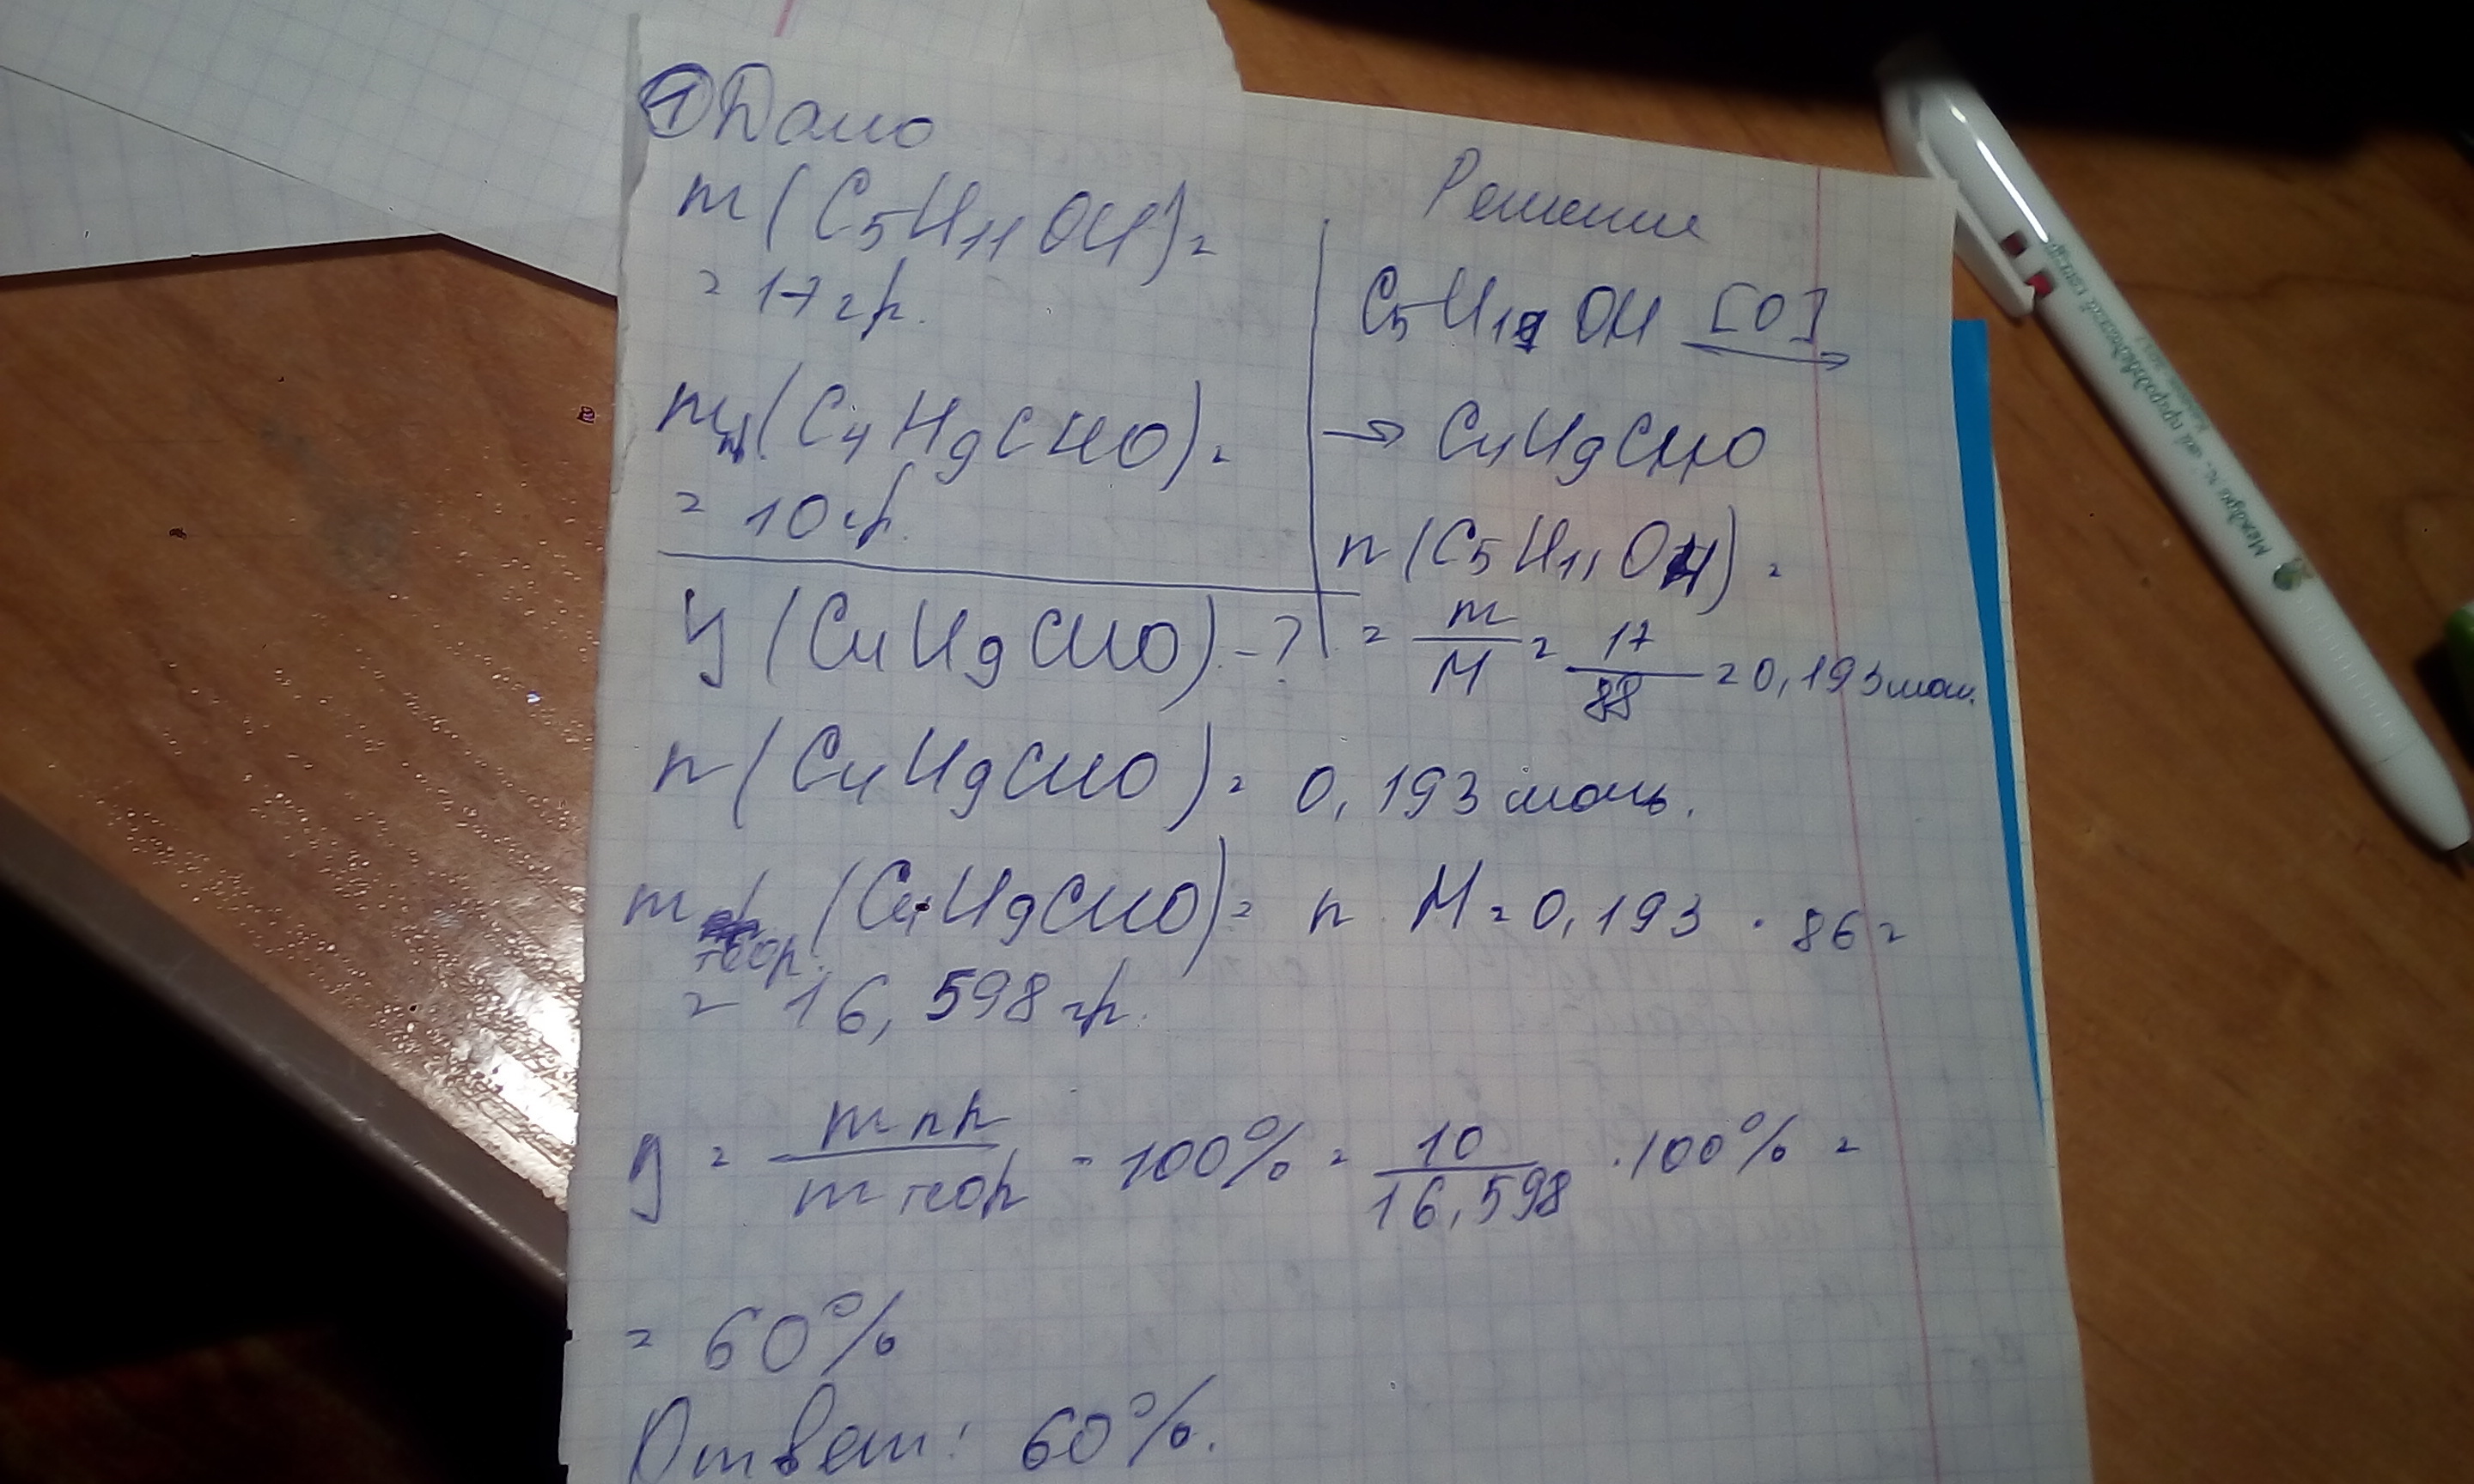 ① Дано
m(C₅H₁₁OH)=
= 17 гр.
mпр(C₄H₉CHO)=
= 10 гр.
η(C₄H₉CHO)-?
Решение
C₅H₁₁OH [O]→
→ C₄H₉CHO
n(C₅H₁₁OH)=
= m/M = 17/88 = 0,193 моль.
n(C₄H₉CHO)= 0,193 моль.
m теор. (C₄H₉CHO)= n · M = 0,193 · 86 =
= 16,598 гр.
η = m пр / m теор · 100% = 10/16,598 · 100% =
= 60%
Ответ: 60%.